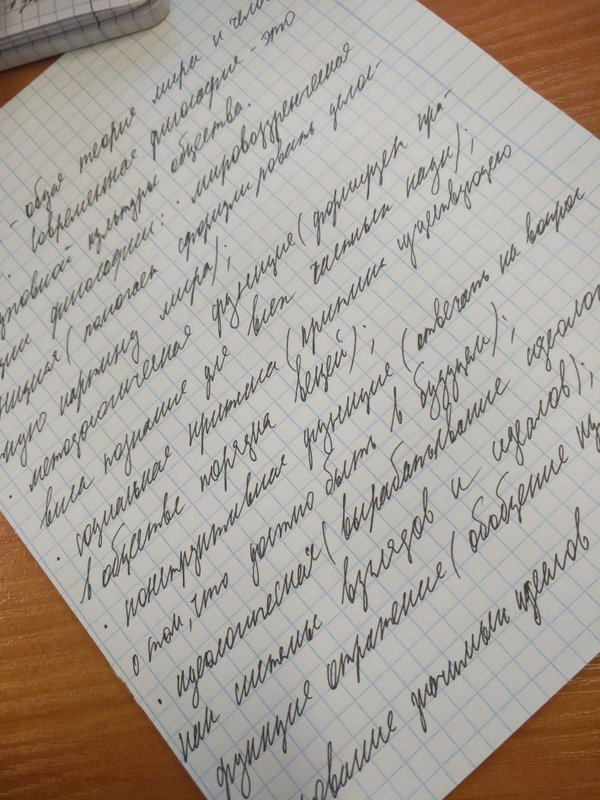 - общая теория мира и чело
Современная философия - это
духовной культуры общества.
ции философии: · мировоззренческая
функция (помогает сформулировать целос-
ную картину мира);
· методологическая функция (формирует пра-
вила познания для всех частных наук);
· социальная критика (критик существующего
в обществе порядка вещей);
· конструктивная функция (отвечать на вопрос
о том, что должно быть в будущем);
· идеологическая (вырабатывание идеолог
как системы взглядов и идеалов);
функция отражения (обобщение
ование значимых идеалов